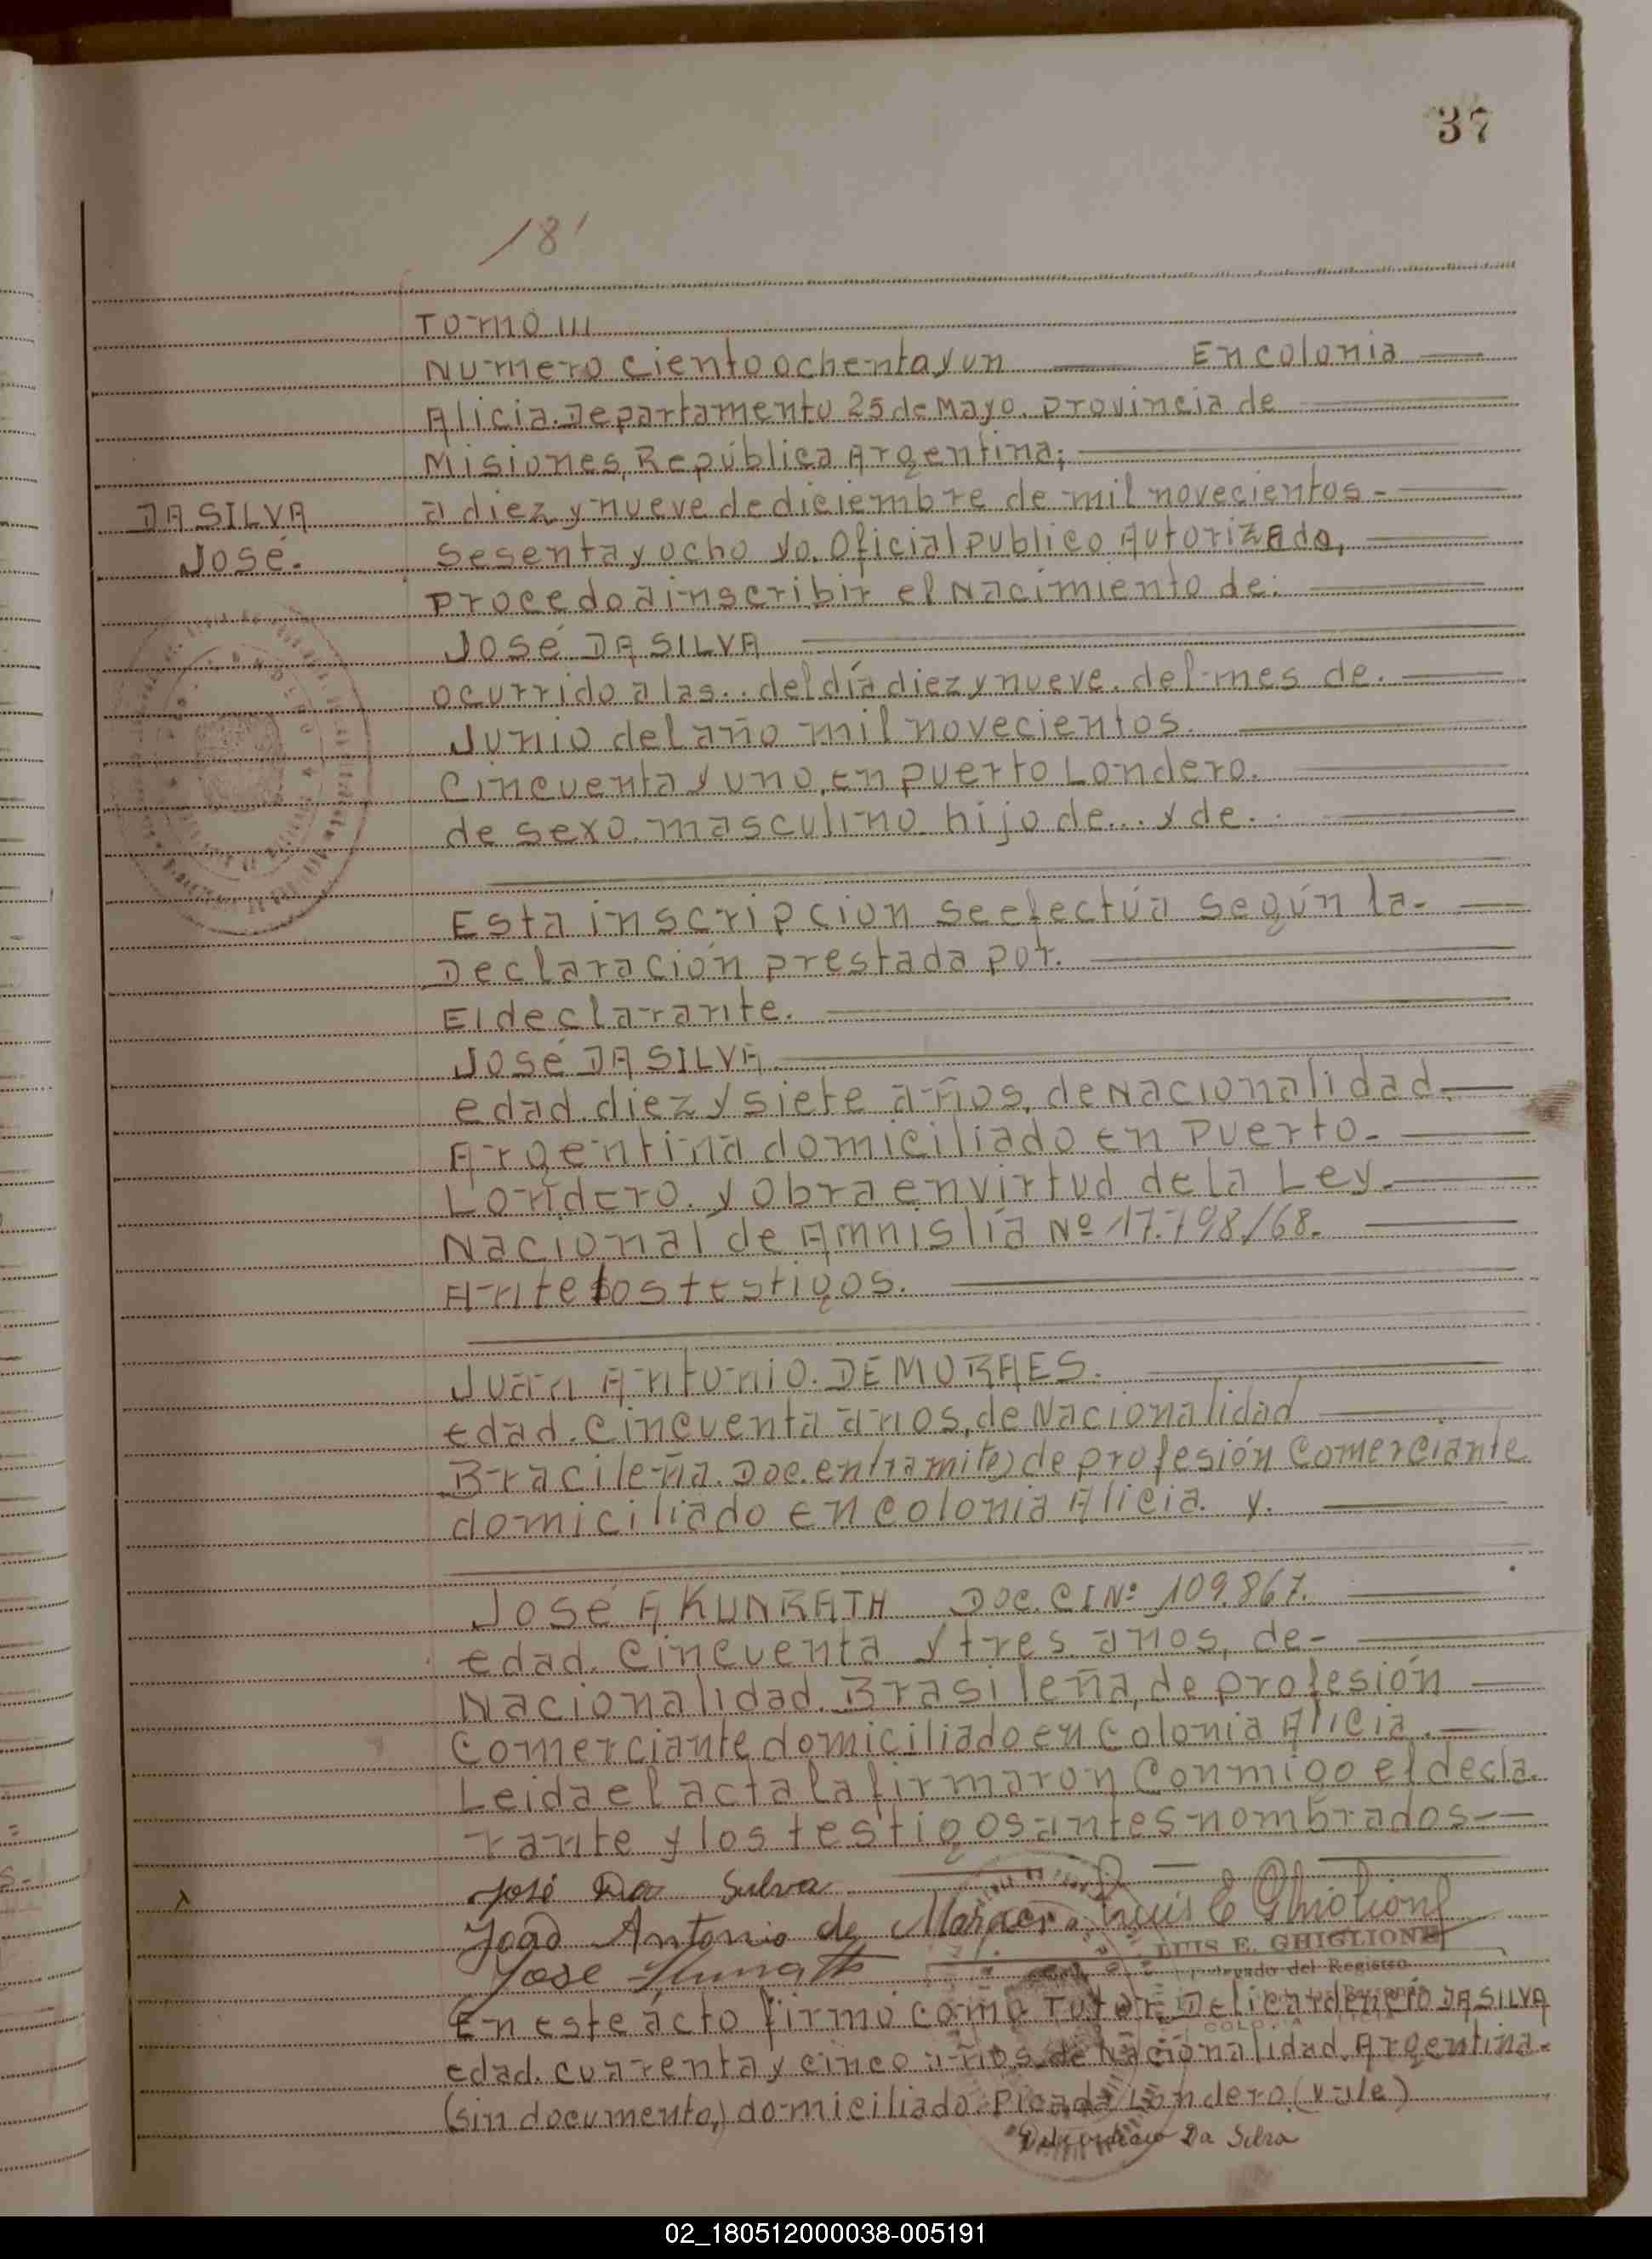 37
181
Tomo III
Numero ciento ochenta y un En colonia
Alicia. Departamento 25 de Mayo. provincia de
Misiones, República Argentina;
DA SILVA
José.
a diez y nueve de diciembre de mil novecientos -
Sesenta y ocho yo. Oficial publico Autorizado,
procedo a inscribir el Nacimiento de:
José DA SILVA
ocurrido a las.. del día diez y nueve. del mes de.
Junio del año mil novecientos.
Cincuenta y uno, en puerto Londero.
de sexo. masculino hijo de... y de.
Esta inscripcion se efectúa según la-
Declaración prestada por.
El declarante.
José DA SILVA
edad. diez y siete años, de Nacionalidad.
Argentina domiciliado en Puerto-
Londero. y obra en virtud de la Ley.
Nacional de Amnislía Nº 17.798/68.
Ante los testigos.
Juan Antonio. DE MORAES.
edad. Cincuenta años, de Nacionalidad
Bracileña. Doc. en tramite) de profesión Comerciante
domiciliado en Colonia Alicia. y.
José A KUNRATH Doc. C I Nº 109.867.
edad. Cincuenta y tres años, de-
Nacionalidad. Brasileña, de profesión
Comerciante domiciliado en Colonia Alicia.
Leida el acta la firmaron Conmigo el decla.
rante y los testigos antes nombrados-
José Da Sulva
João Antonio de Moraes Luis E Ghiglione
LUIS E. GHIGLIONE
Jose Kunrath
del Registro
En este ácto firmó como Tutor. Delicardencio DA SILVA
edad. cuarenta y cinco años de Nacionalidad. Argentina-
(sin documento,) domiciliado. Picada Londero. (vale)
Da Silva
02_180512000038-005191